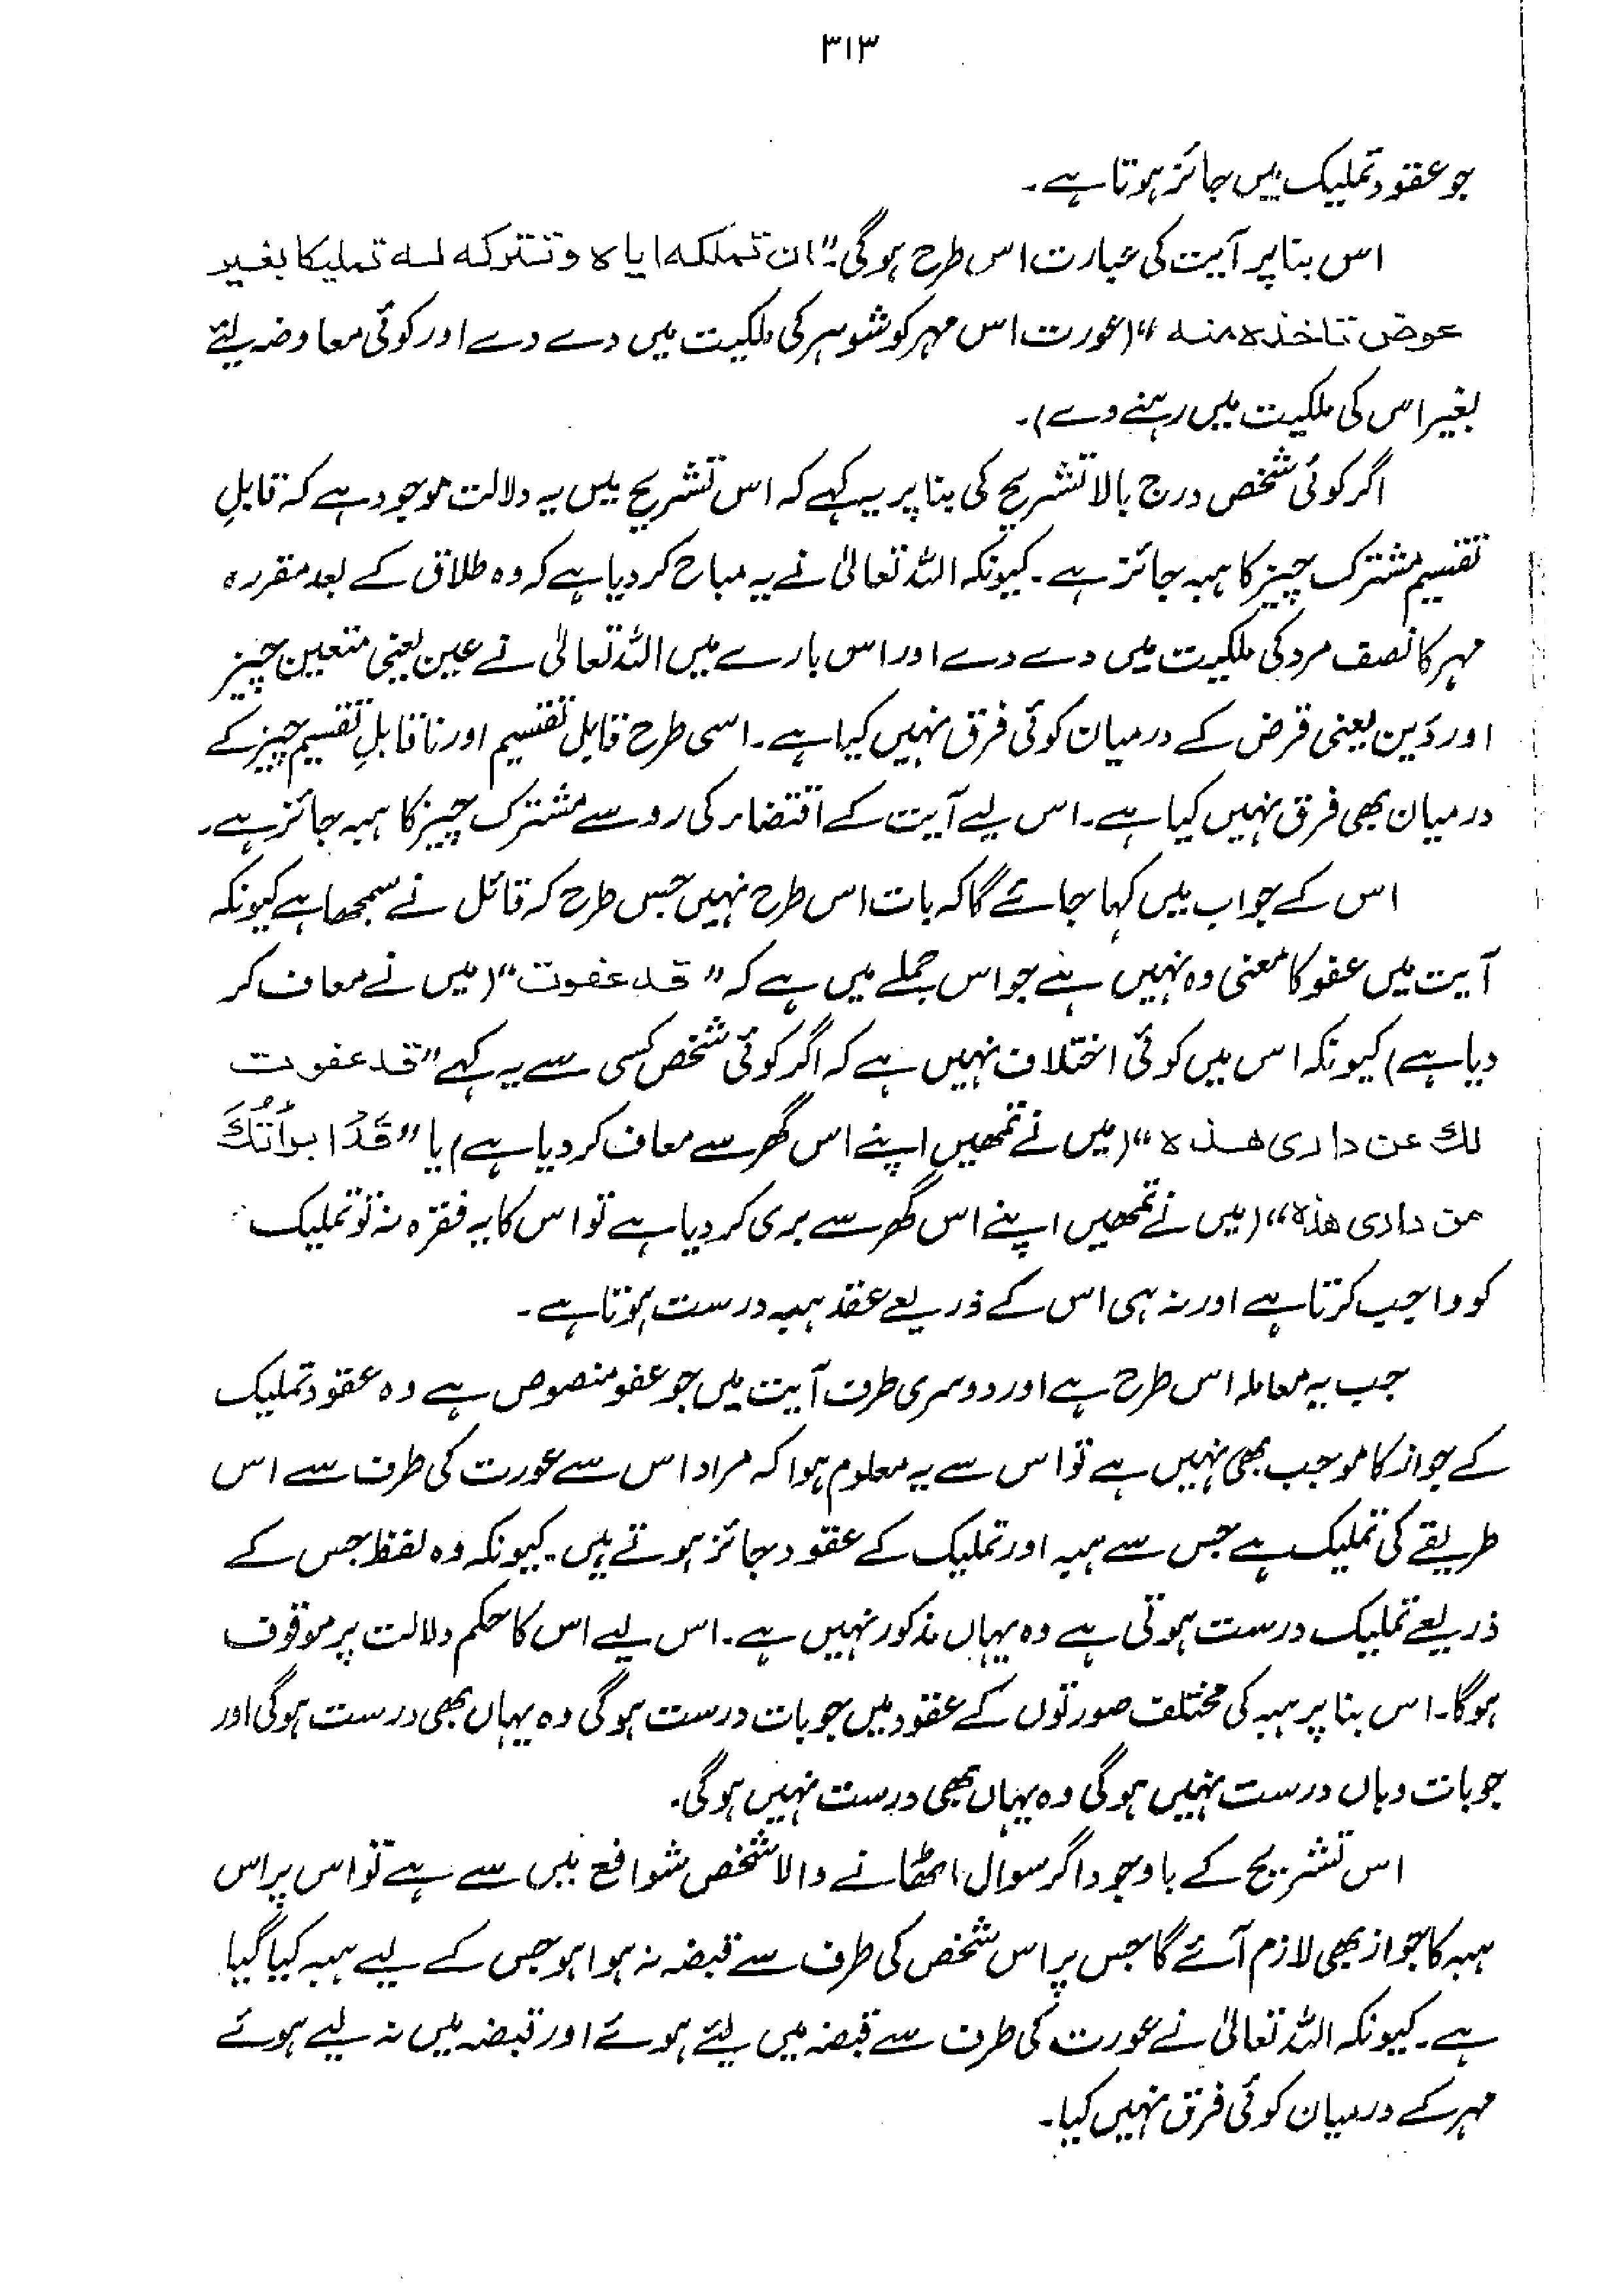 ۳۱۳
جو عقود تملیک میں جائز ہوتا ہے۔
اس بنا پر آیت کی عبارت اس طرح ہوگی۔ "ان تملکہ ایاہ وتترکہ لہ تملیکا بغیر
عوض تاخذہ منہ" (عورت اس مہر کو شوہر کی ملکیت میں دے دے اور کوئی معاوضہ لیئے
بغیر اس کی ملکیت میں رہنے دے)۔
اگر کوئی شخص درج بالا تشریح کی بنا پر یہ کہے کہ اس تشریح میں یہ دلالت موجود ہے کہ قابلِ
تقسیم مشترک چیز کا ہبہ جائز ہے۔ کیونکہ اللہ تعالیٰ نے یہ مباح کر دیا ہے کہ وہ طلاق کے بعد مقررہ
مہر کا نصف مرد کی ملکیت میں دے دے اور اس بارے میں اللہ تعالیٰ نے عین یعنی متعین چیز
اور دَین یعنی قرض کے درمیان کوئی فرق نہیں کیا ہے۔ اسی طرح قابل تقسیم اور ناقابلِ تقسیم چیز کے
درمیان بھی فرق نہیں کیا ہے۔ اس لیے آیت کے اقتضاء کی رو سے مشترک چیز کا ہبہ جائز ہے۔
اس کے جواب میں کہا جائے گا کہ بات اس طرح نہیں جس طرح کہ قائل نے سمجھا ہے کیونکہ
آیت میں عفو کا معنی وہ نہیں ہے جو اس جملے میں ہے کہ "قد عفوت" (میں نے معاف کر
دیا ہے) کیونکہ اس میں کوئی اختلاف نہیں ہے کہ اگر کوئی شخص کسی سے یہ کہے "قد عفوت
لك عن داری ھذہ" (میں نے تمھیں اپنے اس گھر سے معاف کر دیا ہے) یا "قَدْ ابرأتُكَ
من داری ھذہ" (میں نے تمھیں اپنے اس گھر سے بری کر دیا ہے تو اس کا یہ فقرہ نہ تو تملیک
کو واجب کرتا ہے اور نہ ہی اس کے ذریعے عقد ہبہ درست ہوتا ہے۔
جب یہ معاملہ اس طرح ہے اور دوسری طرف آیت میں جو عفو منصوص ہے وہ عقود تملیک
کے جواز کا موجب بھی نہیں ہے تو اس سے یہ معلوم ہوا کہ مراد اس سے عورت کی طرف سے اس
طریقے کی تملیک ہے جس سے ہبہ اور تملیک کے عقود جائز ہوتے ہیں۔ کیونکہ وہ لفظ جس کے
ذریعے تملیک درست ہوتی ہے وہ یہاں مذکور نہیں ہے۔ اس لیے اس کا حکم دلالت پر موقوف
ہوگا۔ اس بنا پر ہبہ کی مختلف صورتوں کے عقود میں جو بات درست ہوگی وہ یہاں بھی درست ہوگی اور
جو بات وہاں درست نہیں ہوگی وہ یہاں بھی درست نہیں ہوگی۔
اس تشریح کے باوجود اگر سوال اٹھانے والا شخص شوافع میں سے ہے تو اس پر اس
ہبہ کا جواز بھی لازم آئے گا جس پر اس شخص کی طرف سے قبضہ نہ ہوا ہو جس کے لیے ہبہ کیا گیا
ہے۔ کیونکہ اللہ تعالیٰ نے عورت کی طرف سے قبضہ میں لیئے ہوئے اور قبضہ میں نہ لیے ہوئے
مہر کے درمیان کوئی فرق نہیں کیا۔